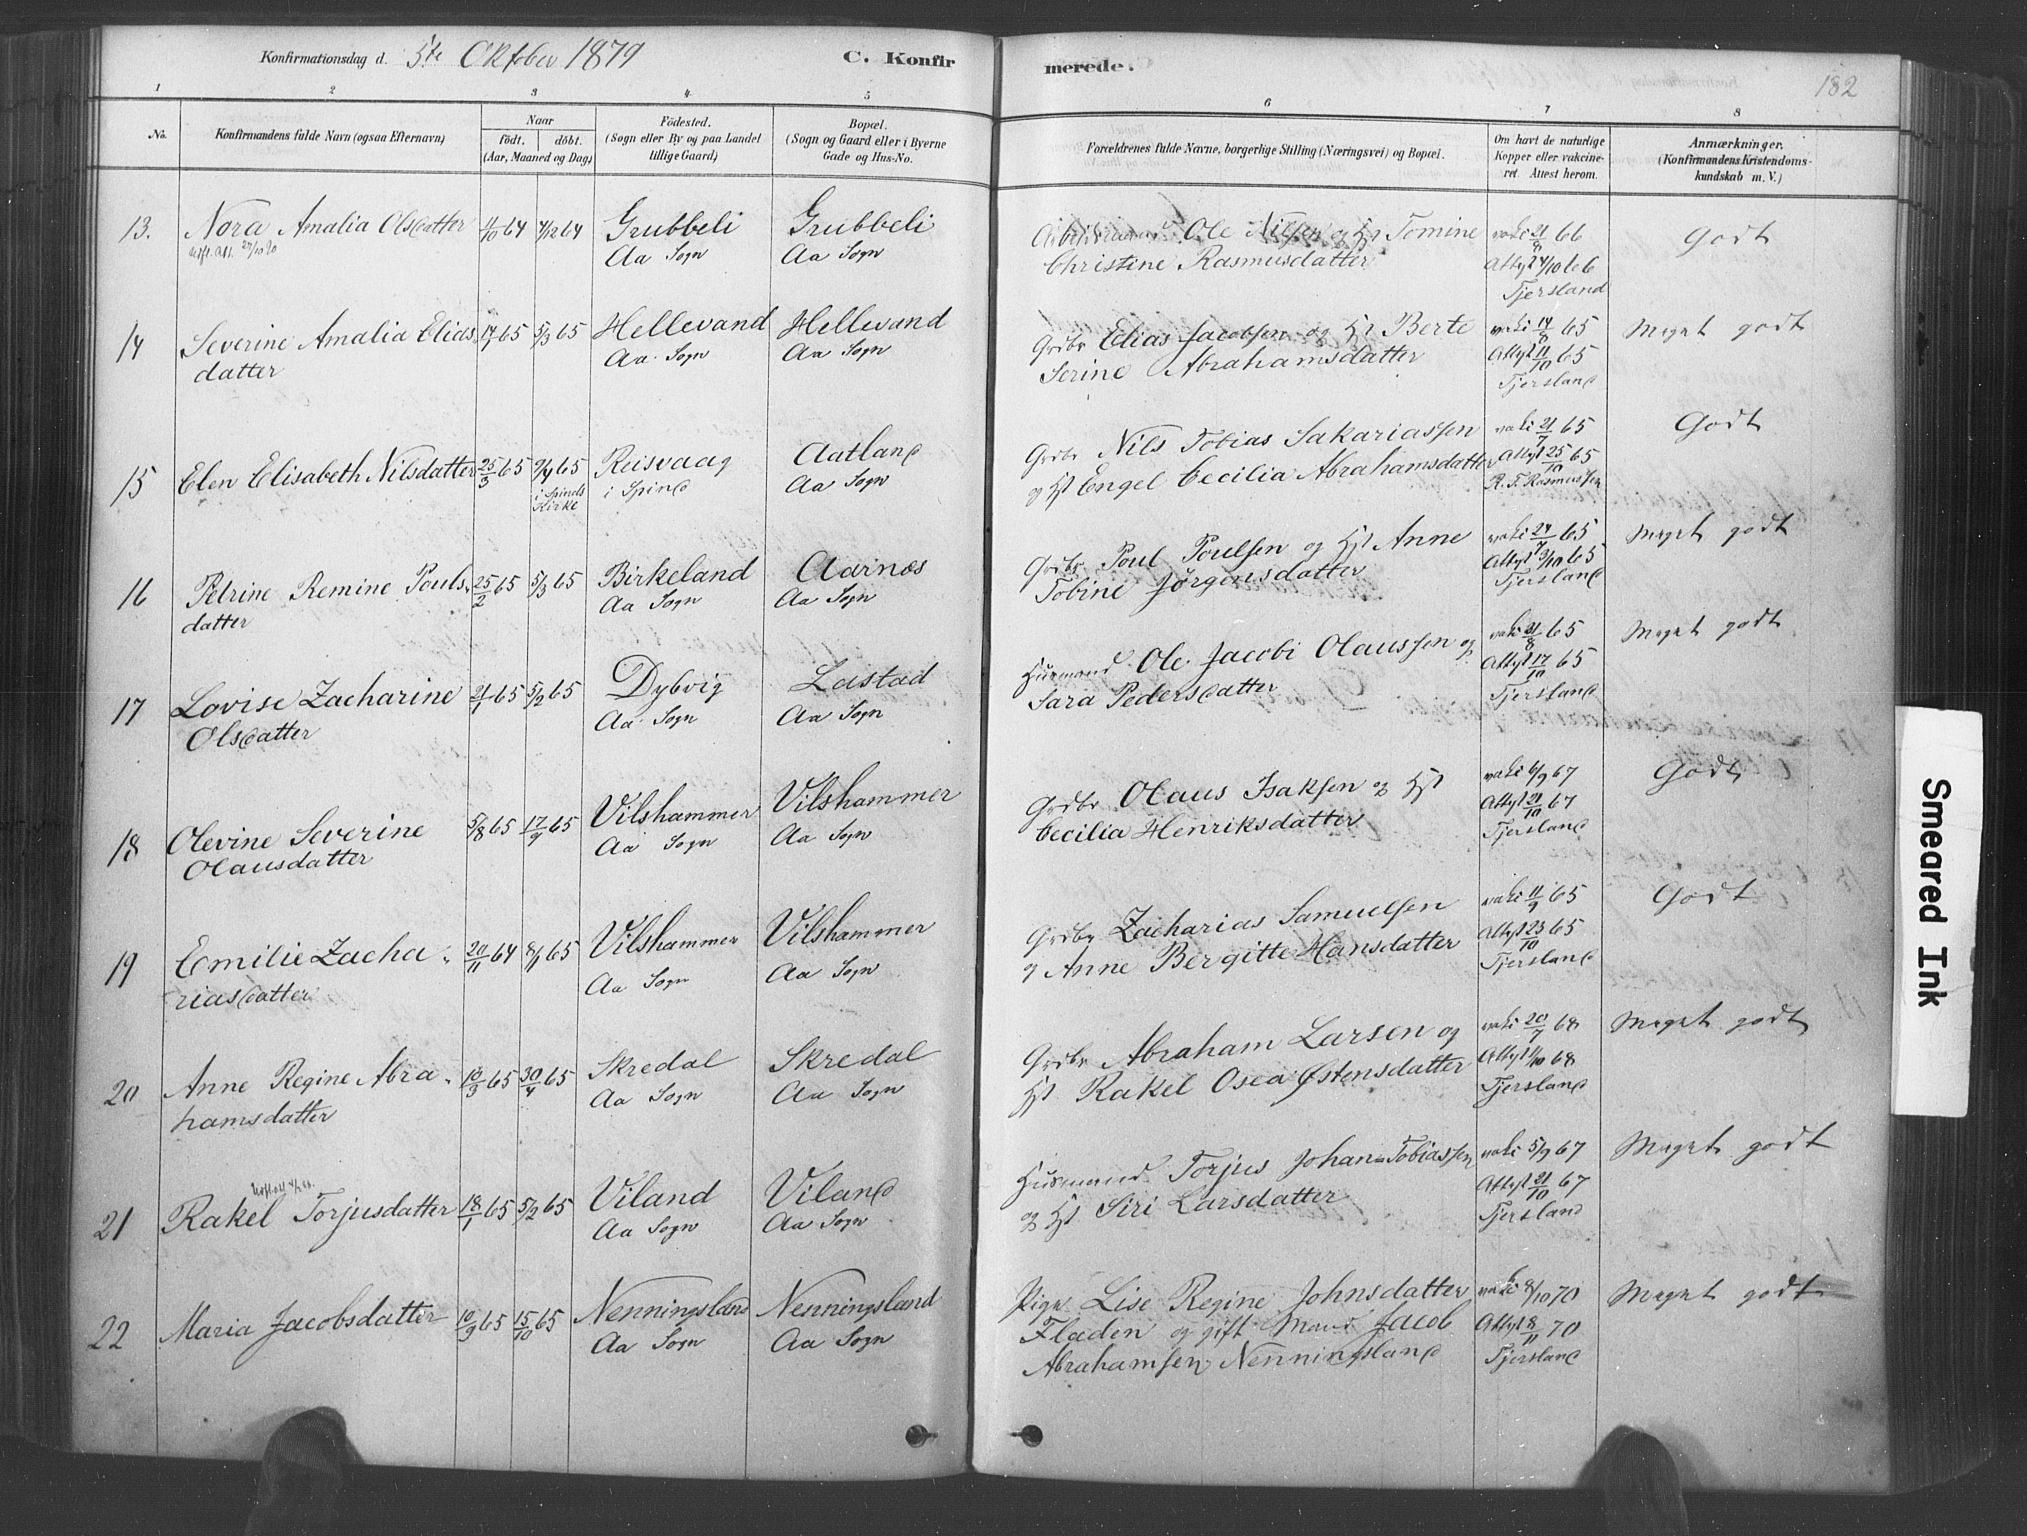 Konfirmationsdag d. 5te Oktober 1879 C. Konfirmerede. 182
1 2 3 4 5 6 7 8
No. Konfirmandens fulde Navn (ogsaa Efternavn) Naar födt. döbt. (Aar, Maaned og Dag) Födested. (Sogn eller By og paa Landet tillige Gaard) Bopæl. (Sogn og Gaard eller i Byerne Gade og Hus-No. Forældrenes fulde Navne, borgerlige Stilling (Næringsvei) og Bopæl. Om havt de naturlige Kopper eller vakcineret. Attest herom. Anmærkninger. (Konfirmandens Kristendomskundskab m. V.)
13. Nora Amalia Olsdatter 11/10 64 4/12 64 Grubbeli Grubbeli Arbeidsmand Ole Nilsen og Hst Tomine vaki 21/8 66 Godt
27/10 90 Aa Sogn Aa Sogn Christine Rasmusdatter Attest 24/10 66
Tjersland
14 Severine Amalia Elias 17/1 65 5/3 65 Hellevand Hellevand Grdbr Elias Jacobsen og Hst Berte vaki 14/8 65 Meget godt
datter Aa Sogn Aa Sogn Serine Abrahamsdatter Attest 11/10 65
Tjersland
15 Elen Elisabeth Nilsdatter 25/3 65 9/4 65 Reisvaag Aatland Grdbr Nils Tobias Sakariassen vaki 21/7 65 Godt
i Spinds Kirke i Spind Aa Sogn og Hst Engel Cecilia Abrahamsdatter Attest 25/10 65
R. T. Rasmussen
16 Petrine Remine Pouls 25/2 65 5/3 65 Birkeland Aarnæs Grdbr Poul Poulsen og Hst Anne vaki 24/7 65 Meget godt
datter Aa Sogn Aa Sogn Tobine Jørgensdatter Attest 3/10 65
Tjersland
17 Lovise Zacharine 21/1 65 5/2 65 Dybvig Lastad Husmand Ole Jacobi Olaussen og vaki 21/8 65 Meget godt
Olsdatter Aa Sogn Aa Sogn Sara Pedersdatter Attest 17/10 65
Tjersland
18 Olevine Severine 5/8 65 17/9 65 Vilshammer Vilshammer Grdbr Olaus Isaksen og Hst vaki 6/9 67 Godt
Olausdatter Aa Sogn Aa Sogn Cecilia Henriksdatter Attest 21/10 67
Tjersland
19 Emilie Zacha 20/11 64 8/1 65 Vilshammer Vilshammer Grdbr Zacharias Samuelsen vaki 11/9 65 Godt
riasdatter Aa Sogn Aa Sogn og Anne Bergitte Hansdatter Attest 23/10 65
Tjersland
20 Anne Regine Abra 10/3 65 30/4 65 Skredal Skredal Grdbr Abraham Larsen og vaki 20/7 68 Meget godt
hamsdatter Aa Sogn Aa Sogn Hst Rakel Osea Østensdatter Attest 1/10 68
Tjersland
21 Rakel Torjusdatter 18/1 65 5/2 65 Viland Viland Husmand Torjus Johan Tobiassen vaki 5/9 67 Meget godt
Aa Sogn Aa Sogn og Hst Siri Larsdatter Attest 21/10 67
Tjersland
22 Maria Jacobsdatter 10/9 65 15/10 65 Nenningsland Nenningsland Pige Lise Regine Johnsdatter vaki 8/10 70 Meget godt
Aa Sogn Aa Sogn Fladen og gift Mand Jacob Attest 8/11 70
Abrahamsen Nenningsland Tjersland
Smeared Ink